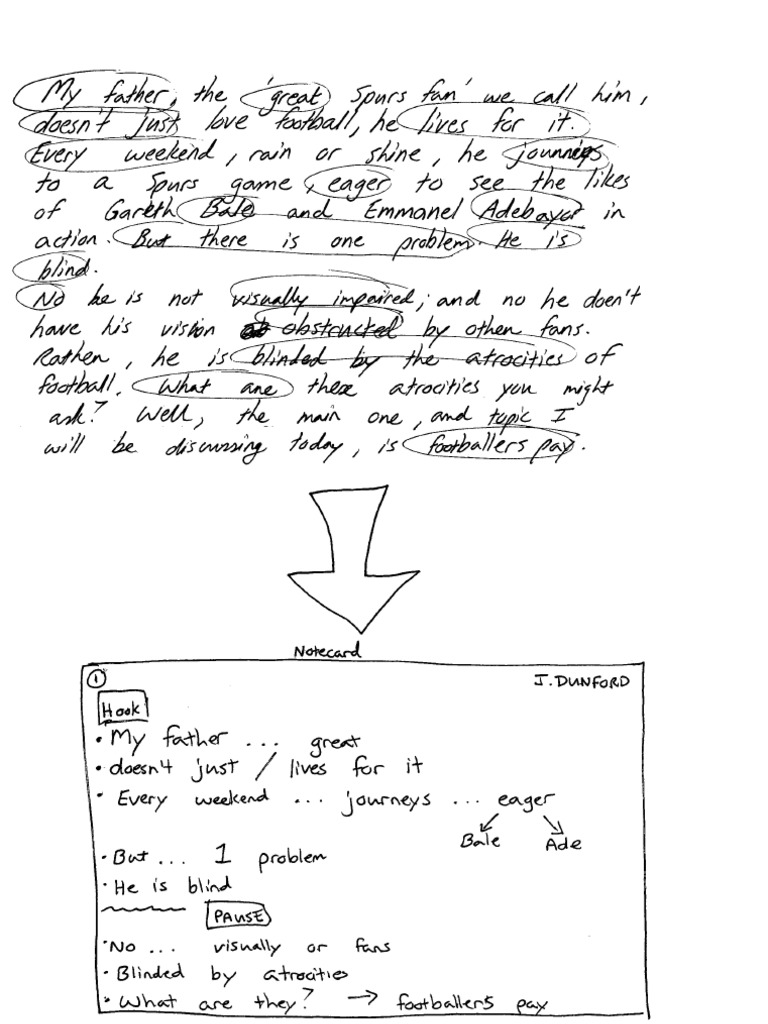 My father, the 'great Spurs fan' we call him,
doesn't just love football, he lives for it.
Every weekend, rain or shine, he journeys
to a Spurs game, eager to see the likes
of Gareth Bale and Emmanel Adebayor in
action. But there is one problem. He is
blind.
No he is not visually impaired, and no he doen't
have his vision obstructed by other fans.
Rather, he is blinded by the atrocities of
football. What are these atrocities you might
ask? Well, the main one, and topic I
will be discussing today, is footballers pay.
Notecard
1 J. DUNFORD
Hook
• My father ... great
• doesn't just / lives for it
• Every weekend ... journeys ... eager
Bale Ade
• But ... 1 problem
• He is blind
PAUSE
• No ... visually or fans
• Blinded by atrocities
• What are they? → footballers pay